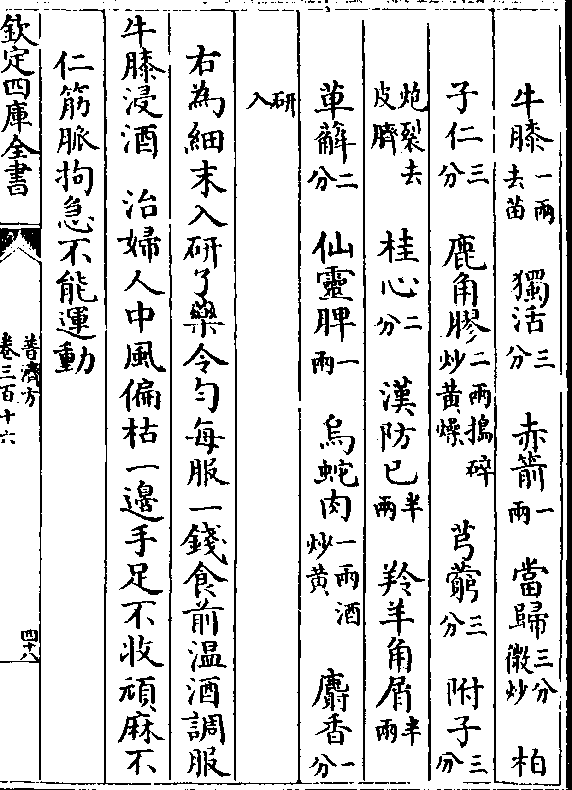 牛膝一兩去苗 獨活三分 赤箭一兩 當歸三分微炒 柏
子仁三分 鹿角膠二兩搗碎炒黄燥 芎藭三分 附子三分
炮裂去皮臍 桂心二分 漢防已半兩 羚羊角屑半兩
萆薢二分 仙靈脾一兩 烏蛇肉一兩酒炒黄 麝香一分
研入
右為細末入研了藥令匀每服一錢食前温酒調服
牛膝浸酒 治婦人中風偏枯一邊手足不收頑麻不
仁筋脈拘急不能運動
欽定四庫全書
普濟方
卷三百十六
四十八